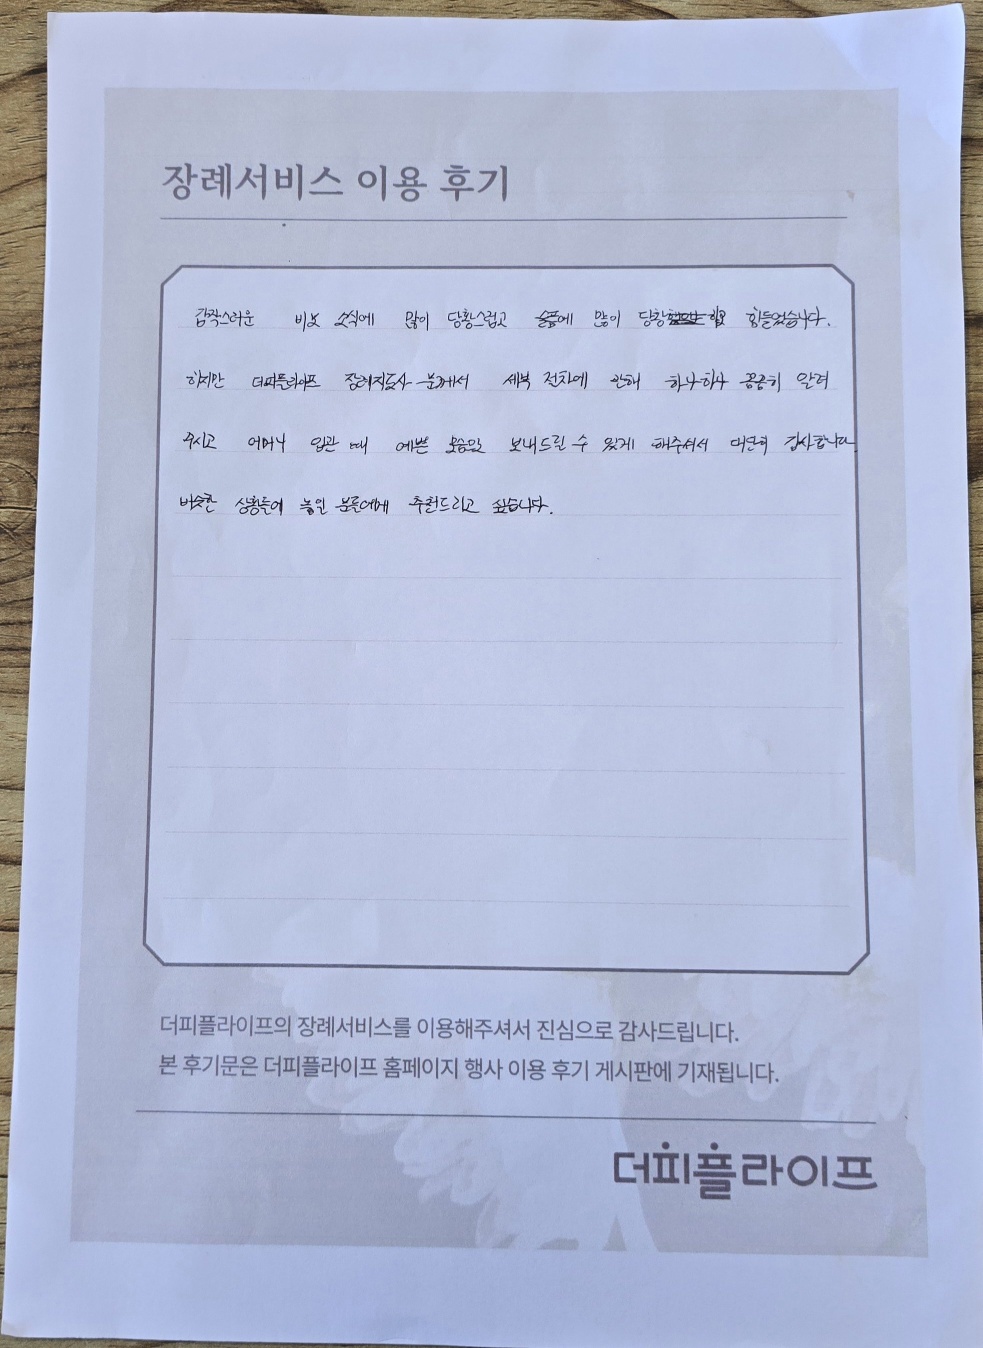 장례서비스 이용 후기
갑작스러운 비보 소식에 많이 당황스럽고 슬픔에 많이 당황 힘들었습니다.
하지만 더피플라이프 장례지도사 분께서 세부 절차에 관해 하나하나 꼼꼼히 알려
주시고 어머니 입관 때 예쁜 모습으로 보내드릴 수 있게 해주셔서 대단히 감사합니다.
비슷한 상황들에 놓인 분들에게 추천드리고 싶습니다.
더피플라이프의 장례서비스를 이용해주셔서 진심으로 감사드립니다.
본 후기문은 더피플라이프 홈페이지 행사 이용 후기 게시판에 기재됩니다.
더피플라이프